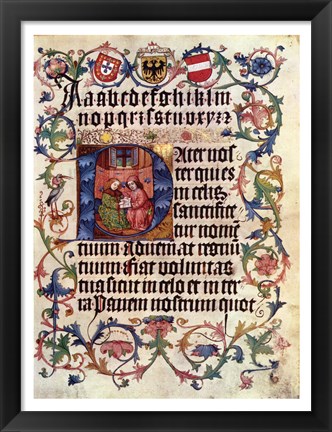 Aabcdefghiklm
nopqrſstuvxyz
Pater noſ
ter qui es
in celis
sanctifice
tur nomē
tuum Adueniat regnū
tuum Fiat voluntas
tua sicut in celo et in ter
ra Panem nostrum quot